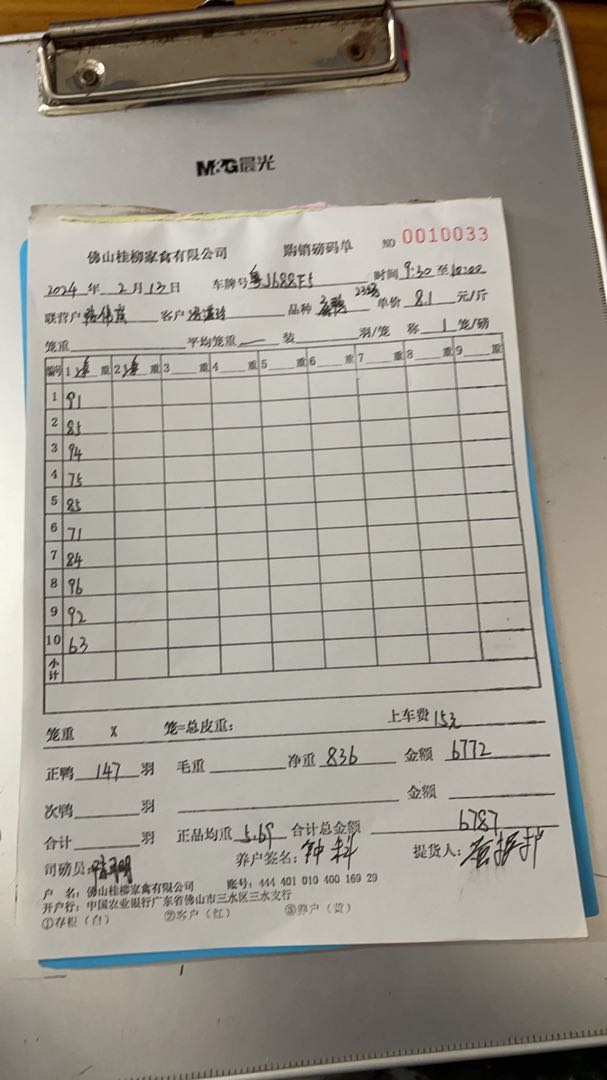 M&G晨光
佛山桂柳家禽有限公司 购销磅码单 № 0010033
2024 年 2 月 13 日 车牌号 粤J688E5 时间 9:30 至 10:00
联营户 客户 品种 单价 8.1 元/斤
笼重 平均笼重 装 羽/笼 称 1 笼/磅
编号 1 重 2 重 3 重 4 重 5 重 6 重 7 重 8 重 9 重
1 91
2 85
3 94
4 75
5 85
6 71
7 84
8 96
9 92
10 63
小计
笼重 X 笼=总皮重: 上车费 15元
正鸭 147 羽 毛重 净重 836 金额 6772
次鸭 羽 金额
合计 羽 正品均重 5.69 合计总金额 6787
司磅员: 养户签名: 钟科 提货人:
户 名: 佛山桂柳家禽有限公司 账号: 444 401 010 400 169 29
开户行: 中国农业银行广东省佛山市三水区三水支行
①存根(白) ②客户(红) ③养户(黄)